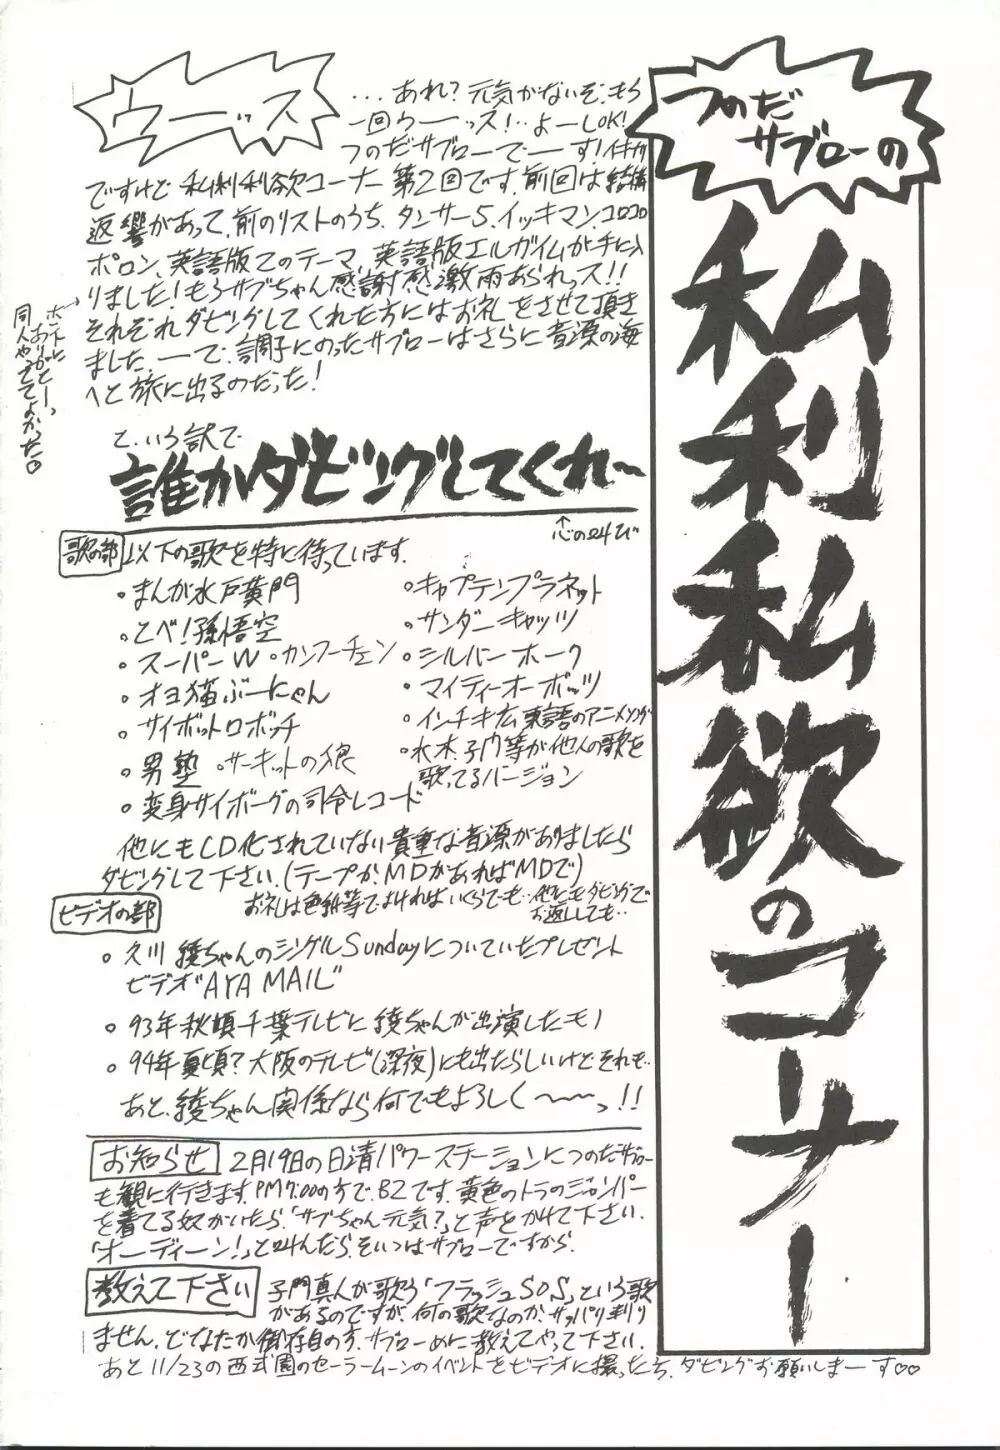 つのだ
サブローの
私利私欲のコーナー
ウーッス
...あれ?元気がないぞ、もう
一回ウーーッス!..よーしOK!
つのだサブローでーーす!イキナリ
ですけど私利私欲コーナー第2回です。前回は結構
返響があって、前のリストのうち、タンサー5、イッキマン、コロコロ
ポロン、英語版Zのテーマ、英語版エルガイムが手に入
りました!もうサブちゃん感謝感激雨あられっス!!
それぞれダビングしてくれた方にはお礼をさせて頂き
ました。ーーで、調子にのったサブローはさらに音源の海
へと旅に出るのだった!
ホントに
ありがとーっ
同人やっててよかった♡
と、いう訳で
誰かダビングしてくれ〜
↑心の叫び
歌の部 以下の歌を特に待っています。
・まんが水戸黄門
・とべ!孫悟空
・スーパーW ・カンフーチェン
・オヨ猫ぶーにゃん
・サイボットロボッチ
・男塾 ・サーキットの狼
・変身サイボーグの司令レコード
・キャプテンプラネット
・サンダーキャッツ
・シルバーホーク
・マイティーオーボッツ
・インチキ広東語のアニメソング
・水木、子門等が他人の歌を
歌ってるバージョン
他にもCD化されていない貴重な音源がありましたら
ダビングして下さい。(テープか、MDがあればMDで)
お礼は色紙等でよければいくらでも…他にもダビングで
お返ししても…
ビデオの部
・久川綾ちゃんのシングルSundayについていたプレゼント
ビデオ"AYA MAIL"
・93年秋頃千葉テレビに綾ちゃんが出演したモノ
・94年夏頃?大阪のテレビ(深夜)にも出たらしいけどそれも…
あと、綾ちゃん関係なら何でもよろしく〜〜っ!!
お知らせ 2月19日の日清パワーステーションにつのだサブロー
も観に行きます。PM7:00の方で、B2です。黄色のトラのジャンパー
を着てる奴がいたら、「サブちゃん元気?」と声をかけて下さい。
「オーディーン!」と叫んだら、そいつはサブローですから。
教えて下さい 子門真人が歌う「フラッシュSOS」という歌
があるのですが、何の歌なのか、サッパリ判り
ません。どなたか御存自の方、サブローめに教えてやって下さい。
あと11/23の西武園のセーラームーンのイベントをビデオに撮った方、ダビングお願いしまーす♡♡